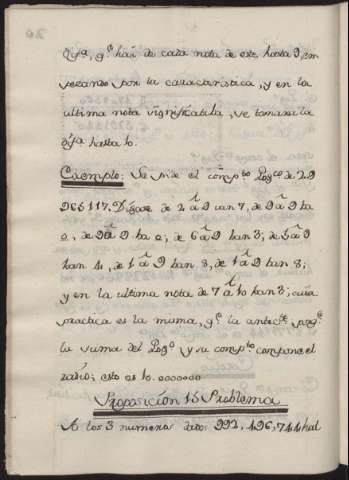 difª, qº hai de cada nota de este hasta 9, em
pezando por la caracaristica, y en la
ultima nota significatiba, se tomara la
difª hasta 10.
Exemplo: Se pide el compto Logco de 2.9
965117. Digase de 2 á 9 ban 7, de 9 á 9 ba
0, de 9 á 9 ba 0; de 6 á 9 ban 3; de 5 á 9
ban 4, de 1 á 9 ban 8, de 1 á 9 ban 8;
y en la ultima nota de 7 á 10 ban 3; cuia
practica es la misma, qº la antecte porqº
la suma del Logº y su compto compone el
radio; esto es 10.0000000
Proposición 15 Problema
A los 3 numeros dados 992, 496, 744 hal